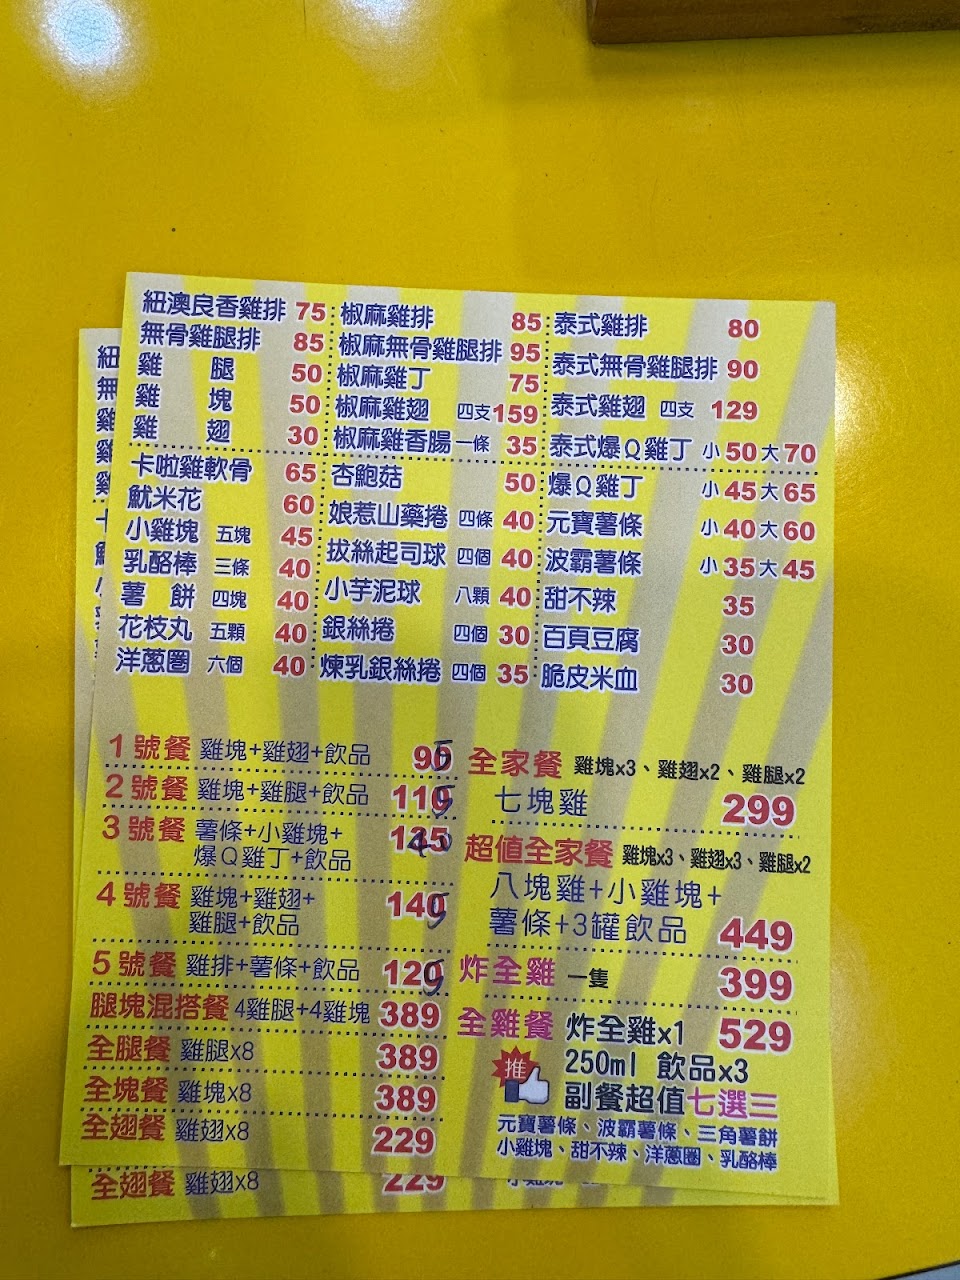 紐澳良香雞排 75
無骨雞腿排 85
雞腿 50
雞塊 50
雞翅 30
卡啦雞軟骨 65
魷米花 60
小雞塊 五塊 45
乳酪棒 三條 40
薯餅 四塊 40
花枝丸 五顆 40
洋蔥圈 六個 40
椒麻雞排 85
椒麻無骨雞腿排 95
椒麻雞丁 75
椒麻雞翅 四支 159
椒麻雞香腸 一條 35
杏鮑菇 50
娘惹山藥捲 四條 40
拔絲起司球 四個 40
小芋泥球 八顆 40
銀絲捲 四個 30
煉乳銀絲捲 四個 35
泰式雞排 80
泰式無骨雞腿排 90
泰式雞翅 四支 129
泰式爆Q雞丁 小 50 大 70
爆Q雞丁 小 45 大 65
元寶薯條 小 40 大 60
波霸薯條 小 35 大 45
甜不辣 35
百頁豆腐 30
脆皮米血 30
1號餐 雞塊+雞翅+飲品 95
2號餐 雞塊+雞腿+飲品 115
3號餐 薯條+小雞塊+
爆Q雞丁+飲品 140
4號餐 雞塊+雞翅+
雞腿+飲品 145
5號餐 雞排+薯條+飲品 125
腿塊混搭餐 4雞腿+4雞塊 389
全腿餐 雞腿x8 389
全塊餐 雞塊x8 389
全翅餐 雞翅x8 229
全家餐 雞塊x3、雞翅x2、雞腿x2
七塊雞 299
超值全家餐 雞塊x3、雞翅x3、雞腿x2
八塊雞+小雞塊+
薯條+3罐飲品 449
炸全雞 一隻 399
全雞餐 炸全雞x1 529
推 250ml 飲品x3
副餐超值七選三
元寶薯條、波霸薯條、三角薯餅
小雞塊、甜不辣、洋蔥圈、乳酪棒
全翅餐 雞翅x8 229